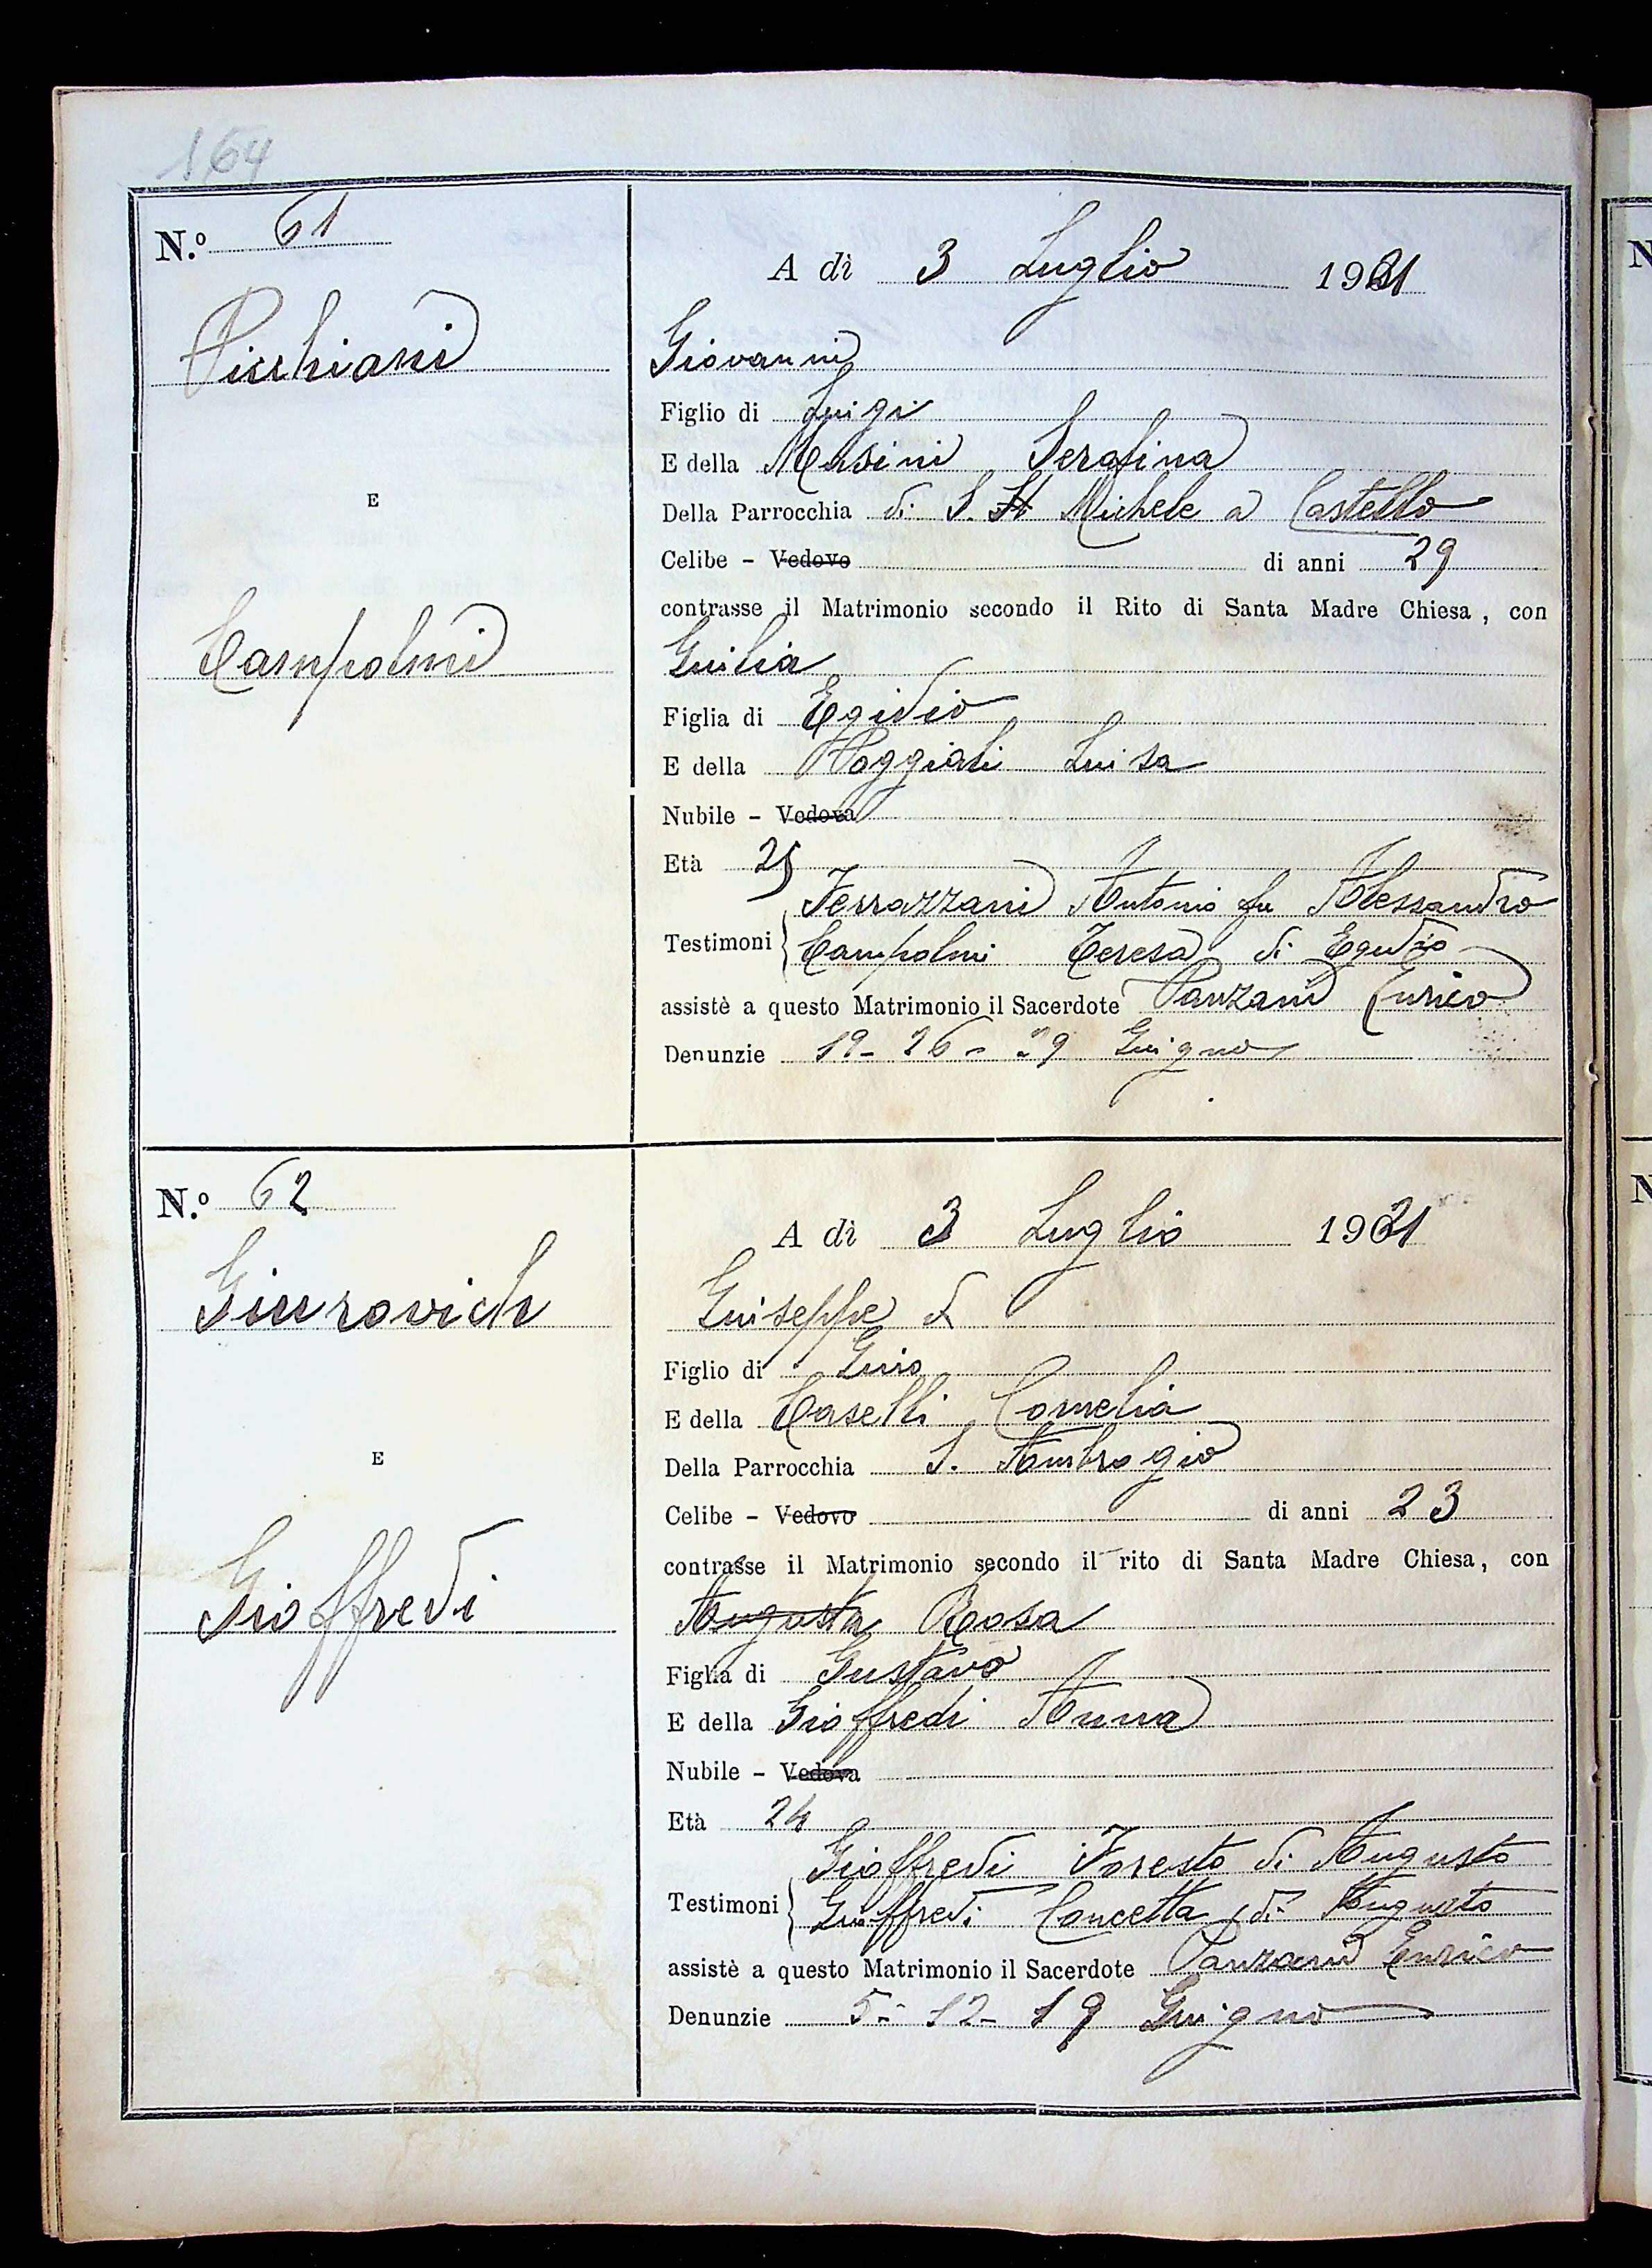 164
N.º 61
A dì 3 Luglio 1921
Picchiani
E
Campolmi
Giovanni
Figlio di Luigi
E della Masini Serafina
Della Parrocchia di S. Michele a Castello
Celibe - Vedovo di anni 29
contrasse il Matrimonio secondo il Rito di Santa Madre Chiesa, con
Giulia
Figlia di Egidio
E della Poggiali Luisa
Nubile - Vedova
Età 25
Terrazzani Antonio fu Alessandro
Testimoni Campolmi Teresa di Egidio
assistè a questo Matrimonio il Sacerdote Panzani Enrico
Denunzie 19 - 26 - 29 Giugno
N.º 62
A dì 3 Luglio 1921
E
Gioffredi
Giuseppe
Figlio di
E della Caselli Cornelia
Della Parrocchia S. Ambrogio
Celibe - Vedovo di anni 23
contrasse il Matrimonio secondo il rito di Santa Madre Chiesa, con
Augusta Rosa
Figlia di Gustavo
E della Gioffredi Anna
Nubile - Vedova
Età 24
Gioffredi Foresto di Augusto
Testimoni Gioffredi Concetta di Augusto
assistè a questo Matrimonio il Sacerdote Panzani Enrico
Denunzie 5 - 12 - 19 Giugno
N
N